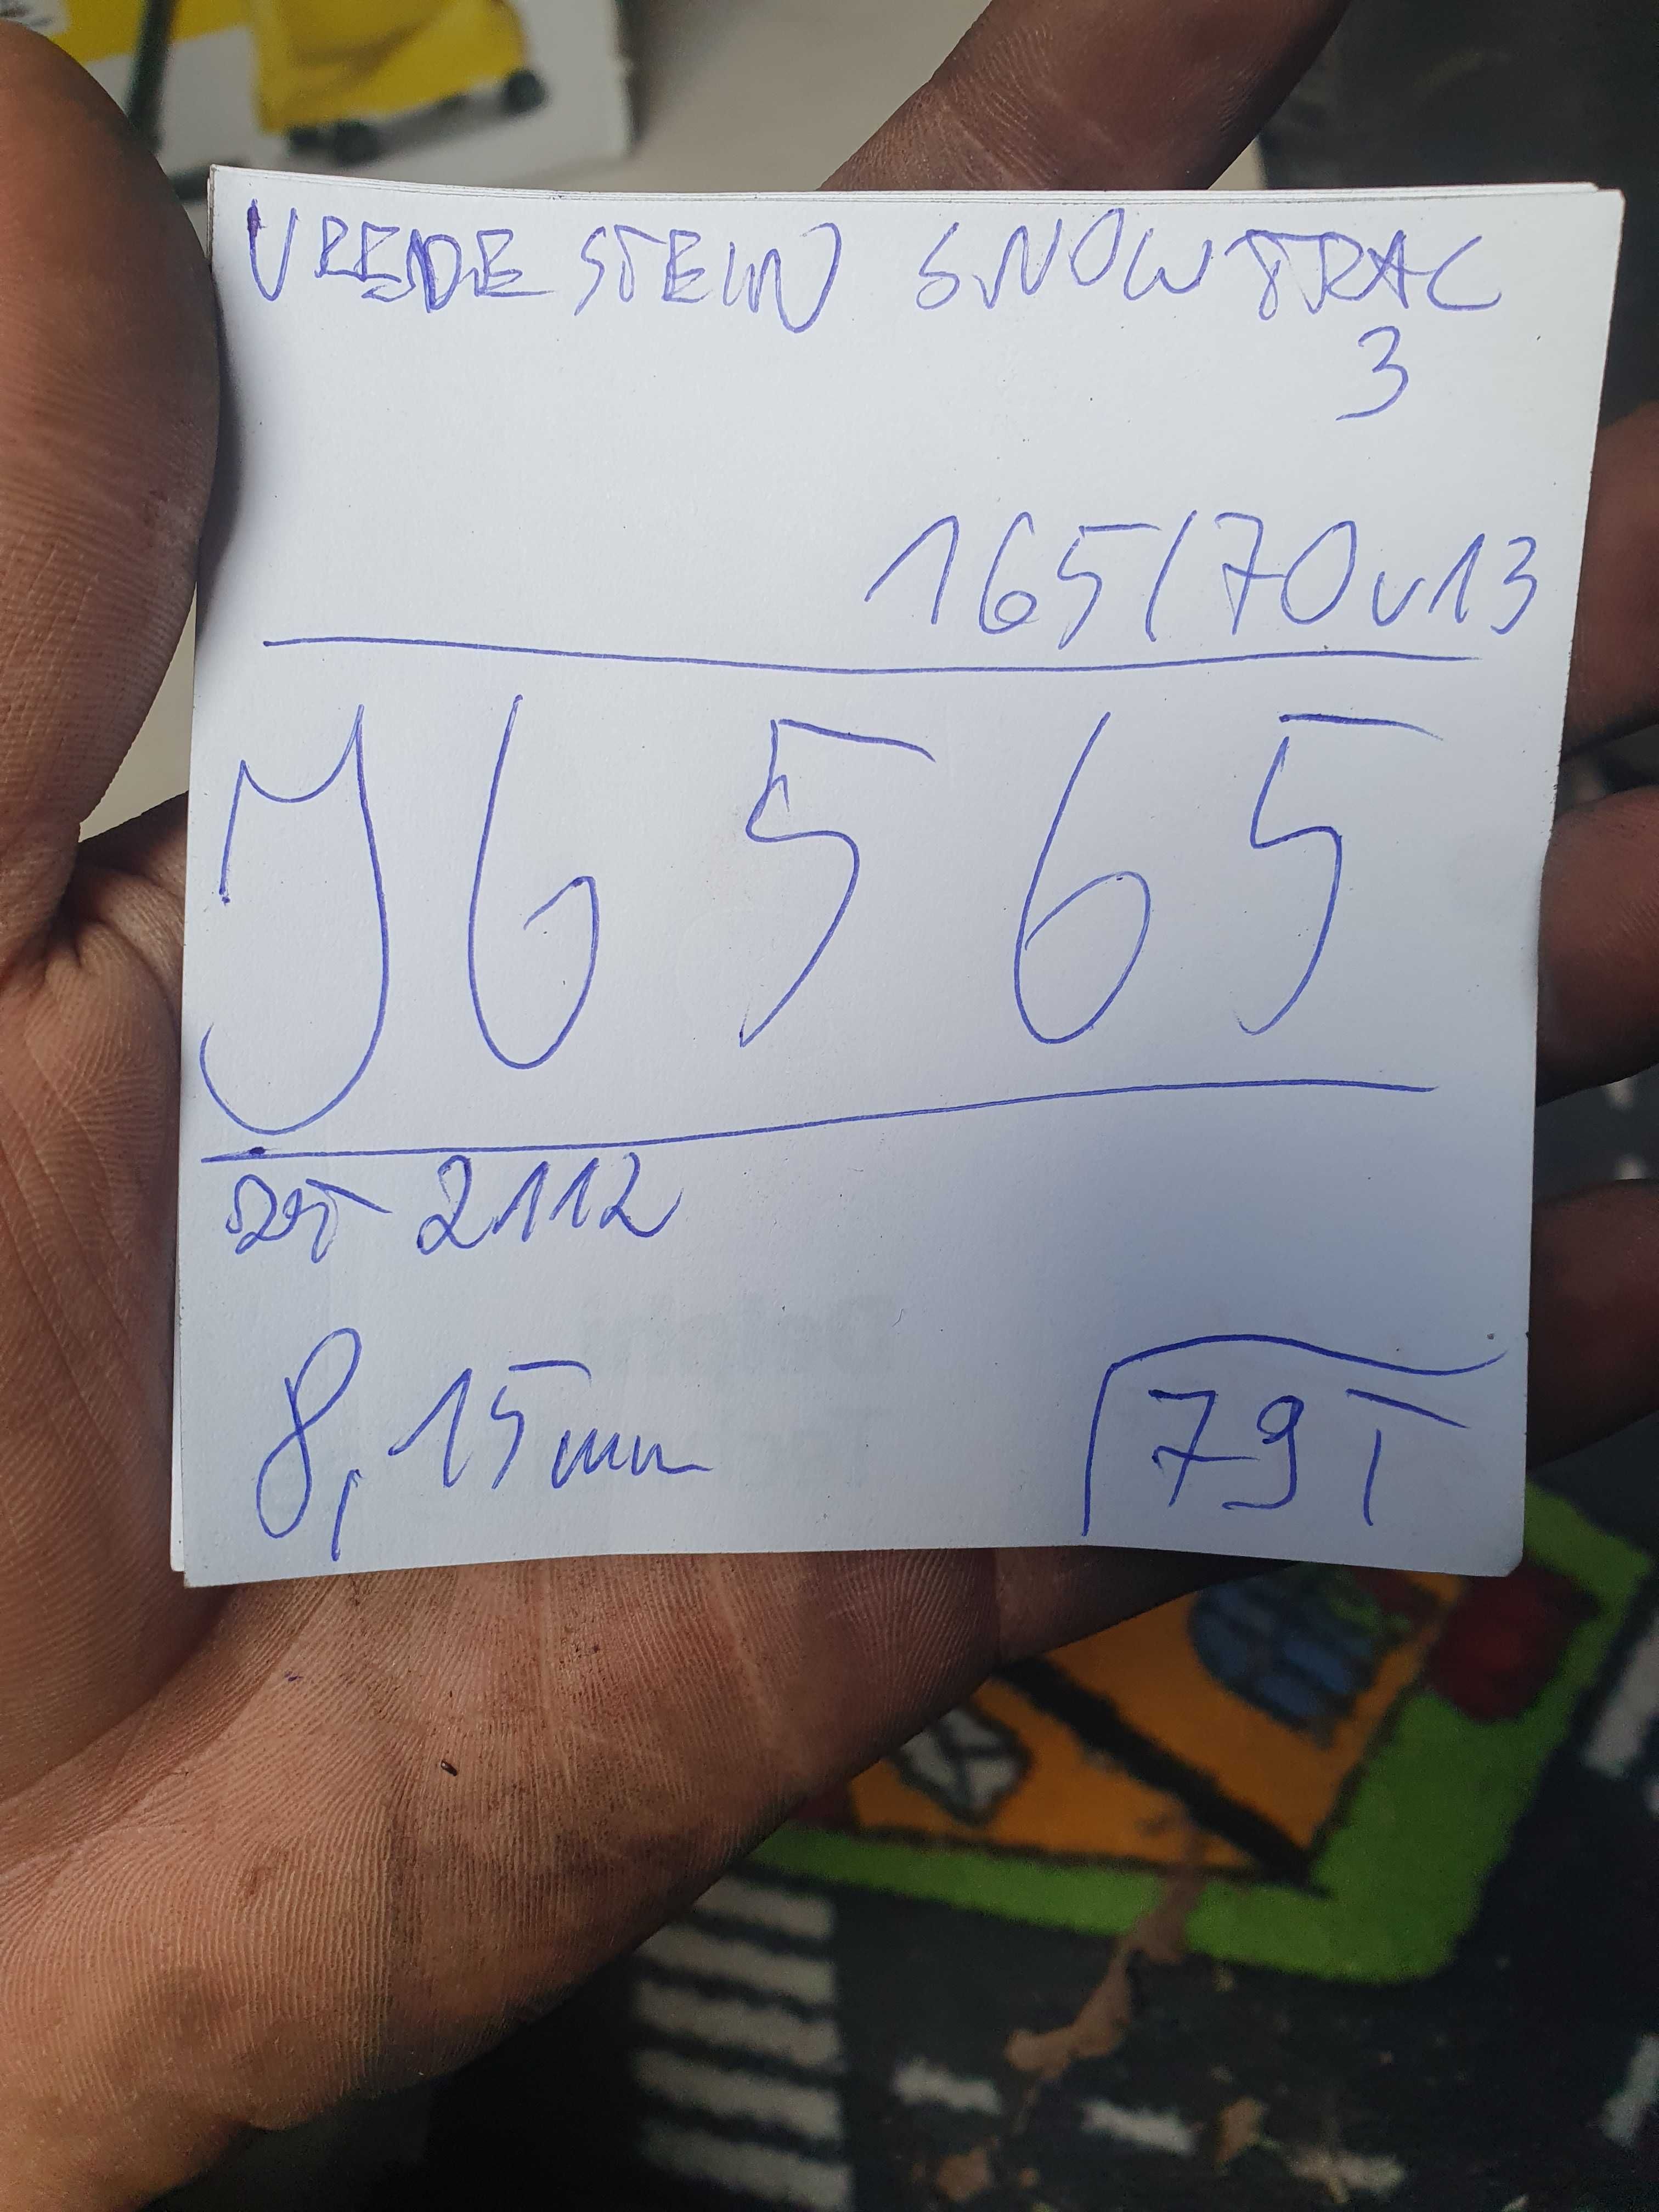 VREDESTEIN SNOWTRAC
3
165/70 r13
J6565
szt 2112
8,15mm
79T